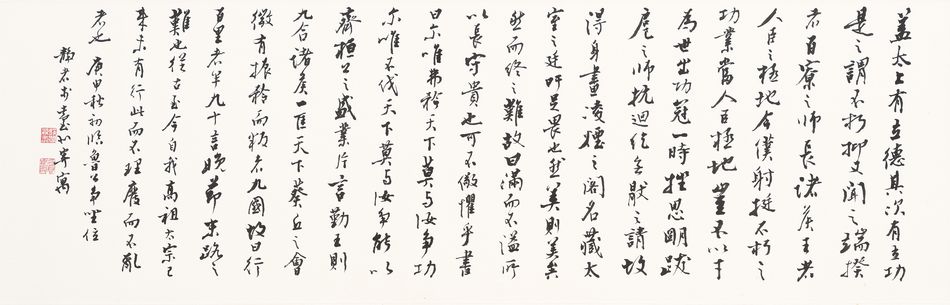 蓋太上有立德其次有立功
是之謂不朽抑又聞之端揆
者百寮之師長諸侯王者
人臣之極地今僕射挺不朽之
功業當人臣極地豈不以才
為世出功冠一時挫思明跋
扈之師抗迴紇無厭之請故
得身畫凌煙之閣名藏太
室之廷吁足畏也然美則美矣
然而終之難故曰滿而不溢所
以長守貴也可不儆懼乎書
曰尔唯弗矜天下莫与汝争功
尔唯不伐天下莫与汝争能以
齊桓公之盛業片言勤王則
九合諸侯一匡天下葵丘之會
微有振矜而叛者九國故曰行
百里者半九十言晚節末路之
難也從古至今自我高祖太宗已
来未有行此而不理廢而不亂
者也 庚申秋初臨魯公争坐位
靜者 寄寓